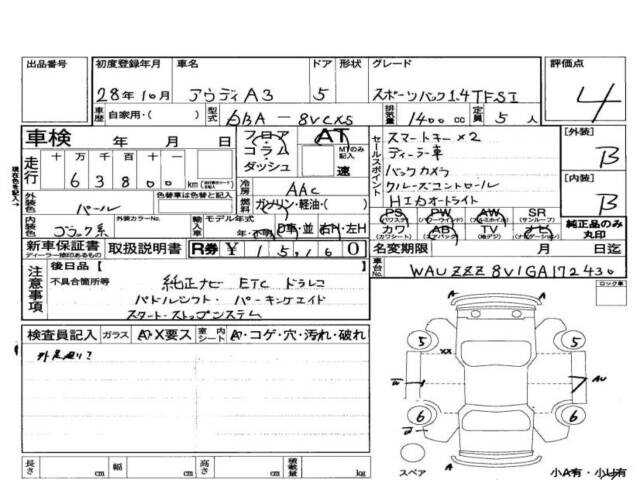 出品番号 初度登録年月 車名 ドア 形状 グレード 評価点
28年10月 アウディA3 5 スポーツバック1.4TFSI 4
車歴 自家用・( ) 型式 DBA-8VCXS 排気量 1400cc 定員 5人
車検 年 月 日 フロア AT セールスポイント スマートキー×2 [外装]
走行 十 万 千 百 十 コラム MTのみ記入 ディーラー車 B
63800 km ダッシュ 速 バックカメラ
現在色を記入→ 冷房 AAC クルーズコントロール [内装]
外装色 パール 色替車は色替と記入 燃料 ガソリン・軽油・( ) HIDオートライト B
内装色 ブラック系 外装カラーNo. 輸入車 モデル年式 PS PW AW SR
年・不明 D車・並 右H・左H カワ AB TV ナビ 純正品のみ丸印
新車保証書 取扱説明書 R券 ¥15160 名変期限 月 日迄
ディーラー捺印のあるもの 車台No. WAUZZZ8V1GA172430
注意事項 後日品[ ] ロック車
不具合箇所等 純正ナビ ETC ドラレコ
パドルシフト・パーキングエイド
スタート・ストップシステム
検査員記入 ガラス A・X要ス 室内シート A・コゲ・穴・汚れ・破れ
A
5 5
XX
AU
6 6
A A
スペア 小A有・小U有
長さ cm 幅 cm 高さ cm 積載量 kg